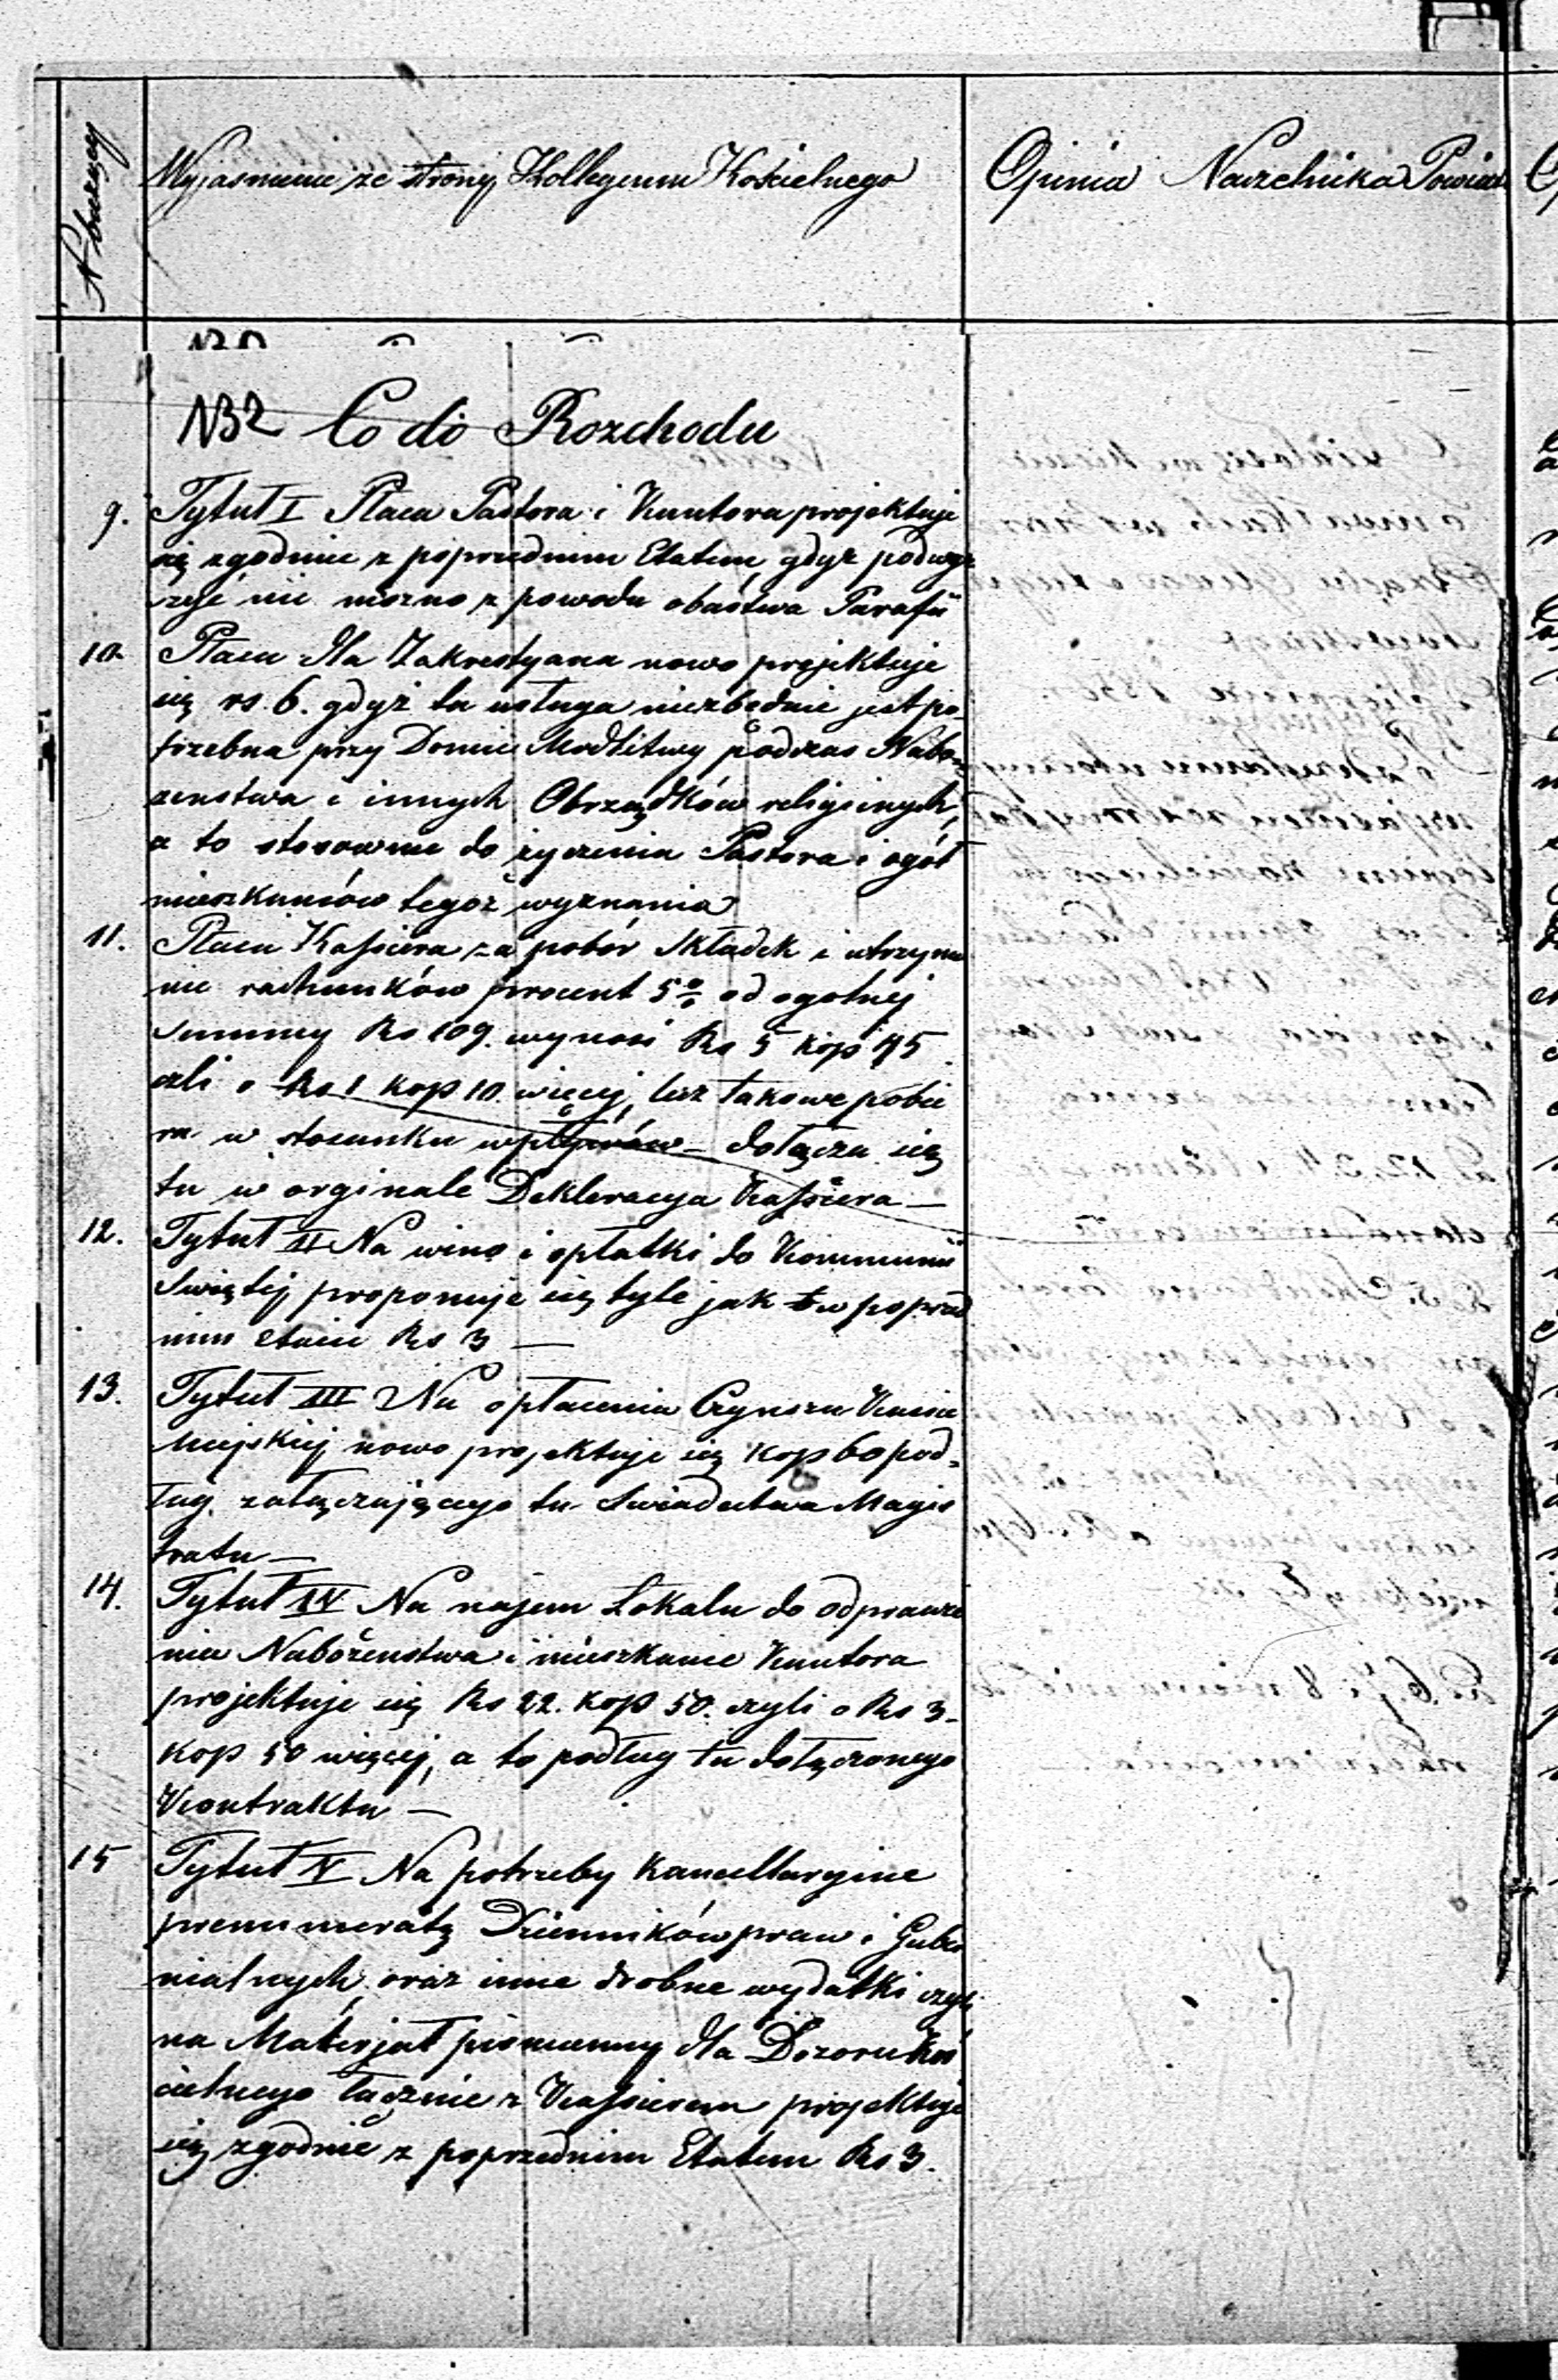 N bieżący
Wyjasnienie ze strony Kollegium Kościelnego
Opinia Naczelnika Powiatu
NB2 Co do Rozchodu
9. Tytuł I Płaca Pastora i Kantora projektuje
się zgodnie z poprzednim Etatem, gdyż podwyż
szyć nie można z powodu ubóstwa Parafii
10. Płaca dla Zakrestyana nowo projektuje
się rs. 6. gdyż ta usługa niezbędnie jest po-
trzebna przy Domie Modlitwy podczas Nabo-
żenstwa i innych Obrządków religijnych,
a to stosownie do życzenia Pastora i ogół
mieszkańców tegoż wyznania
11. Płaca Kassiera za pobór Składek i utrzyma
nie rachunków procent 5% od ogolnej
Summy Rs 109. wynosi Rs 5 kop 45
czli o Rs 1 kop 10. więcej, lecz takowe pobie
ra w stosunku wpływów – dołącza się
tu w orginale Dekleracya Kassiera —
12. Tytuł II Na wino i opłatki do Kommunii
Swiętej proponuje się tyle jak w poprzed
nim etacie Rs 3 —
13. Tytuł III Na opłacenia Czynszu Kassie
Miejskiej nowo projektuje się kop 60 pod-
ług załączającego tu Swiadectwa Magis
tratu —
14. Tytuł IV Na najem Lokalu do odprawie
nia Nabożenstwa i mieszkanie Kantora
projektuje się Rs 22. kop 50. czyli o Rs 3-
kop 50 więcej, a to podług tu dołączonego
Kontraktu —
15 Tytuł V Na potrzeby Kancellaryine
prenumeratę Dzienników praw i Guber
nialnych, oraz inne drobne wydatki czyli
na Materjał piśmienny dla Dozoru Koś
cielnego łącznie z Kassierem projektuje
się zgodnie z poprzednim Etatem Rs 3.